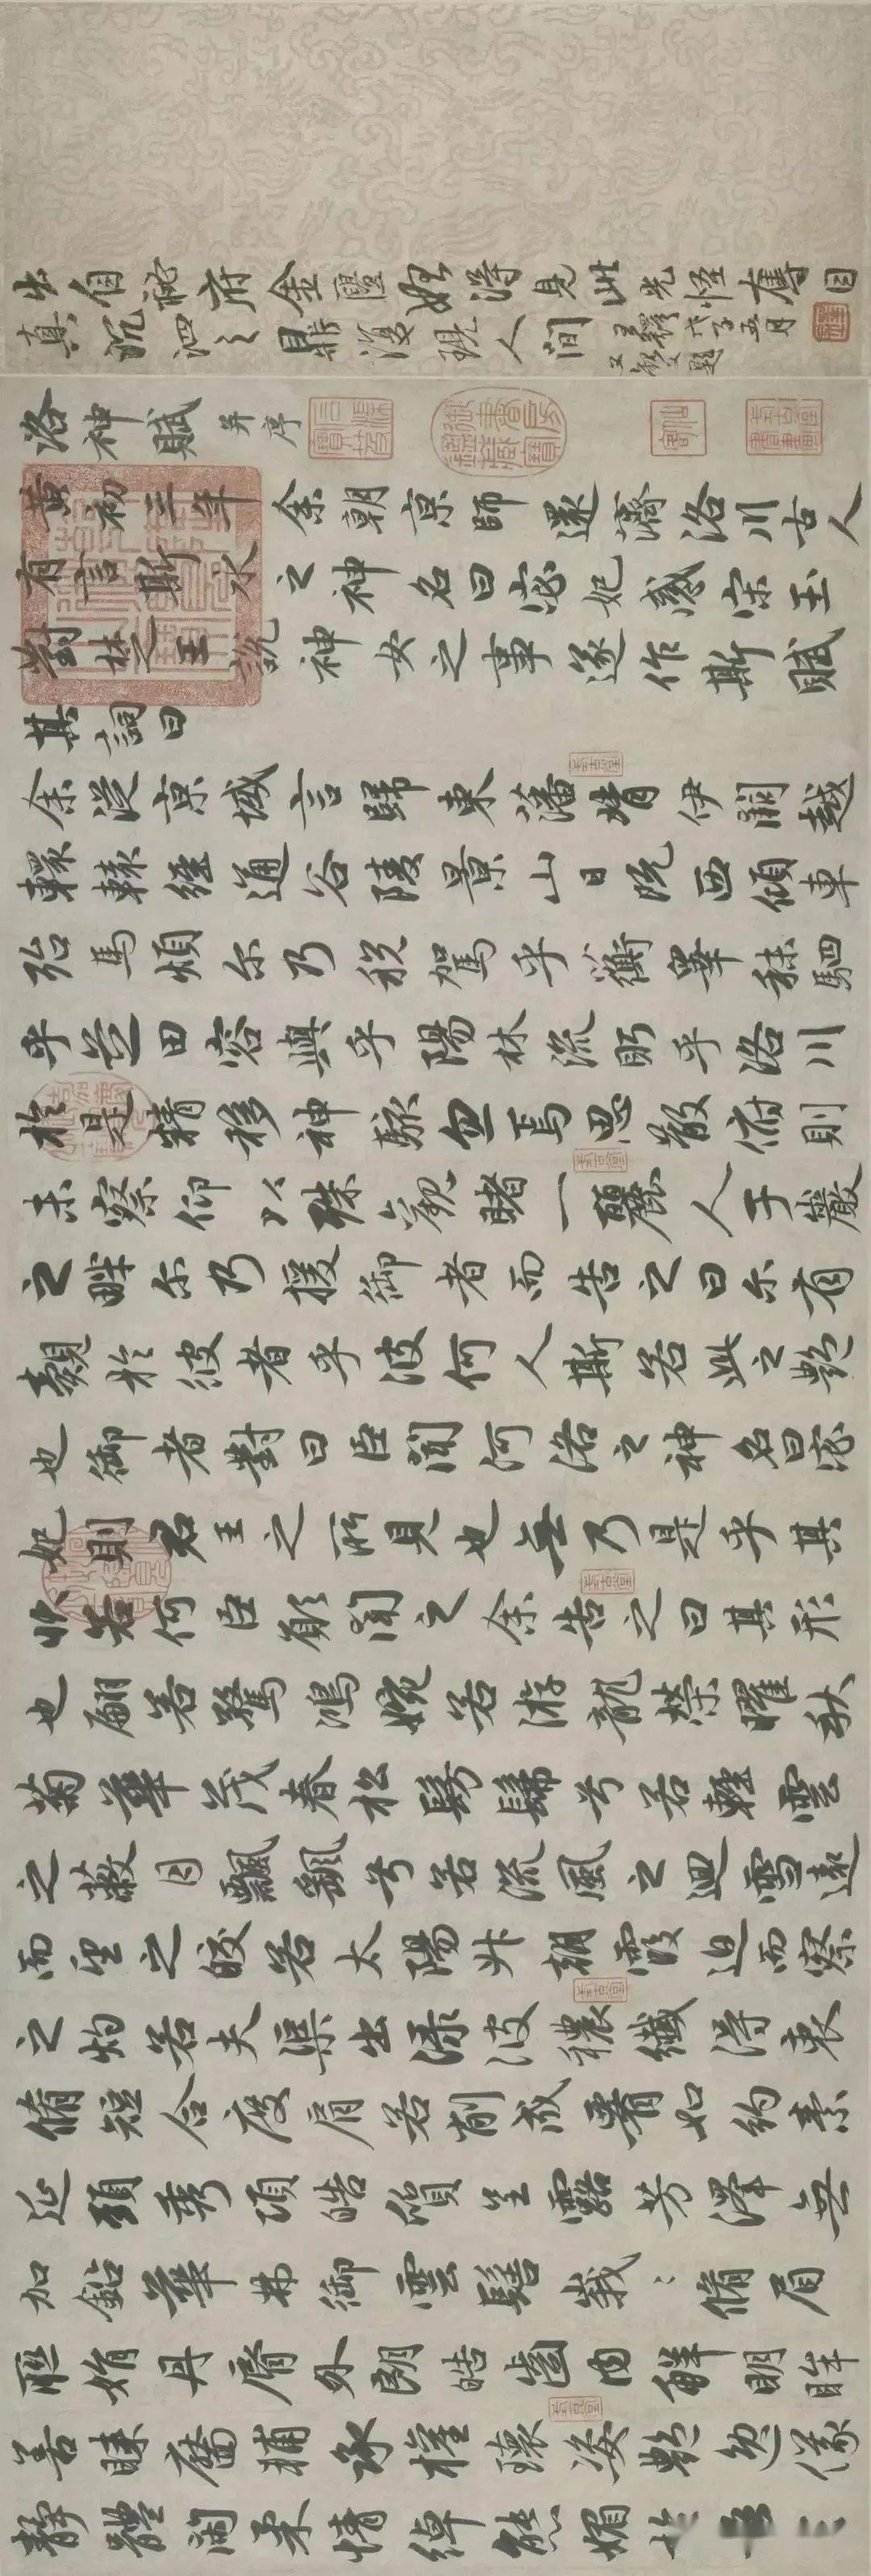 出自祕府金匱始得見此光怪奪目
真沉泗之鼎復現人間
王鐸戊子五月
又敬題
洛神賦 并序
黄初三年余朝京師還濟洛川古人
有言斯水之神名曰宓妃感宋玉
對楚王說神女之事遂作斯賦
其詞曰
余從京域言歸東藩背伊闕越
轘轅經通谷陵景山日既西傾車
殆馬煩尔乃稅駕乎蘅皋秣駟
乎芝田容與乎陽林流眄乎洛川
於是精移神駭忽焉思散俯則
未察仰以殊觀睹一麗人于巖
之畔尔乃援御者而告之曰尔有
覿於彼者乎彼何人斯若此之艶
也御者對曰臣聞河洛之神名曰宓
妃則君王之所見也無乃是乎其
狀若何臣願聞之余告之曰其形
也翩若驚鴻婉若游龍榮曜秋
菊華茂春松髣髴兮若輕雲
之蔽月飄飖兮若流風之迴雪遠
而望之皎若太陽升朝霞迫而察
之灼若夫渠出渌波穠纖得衷
脩短合度肩若削成腰如約素
延頸秀項皓質呈露芳澤無
加鉛華弗御雲髻峩〻脩眉
聯娟丹脣外朗皓齒内鮮明眸
善睞靨輔承權瓌姿艶逸儀
靜體閑柔情綽態媚於